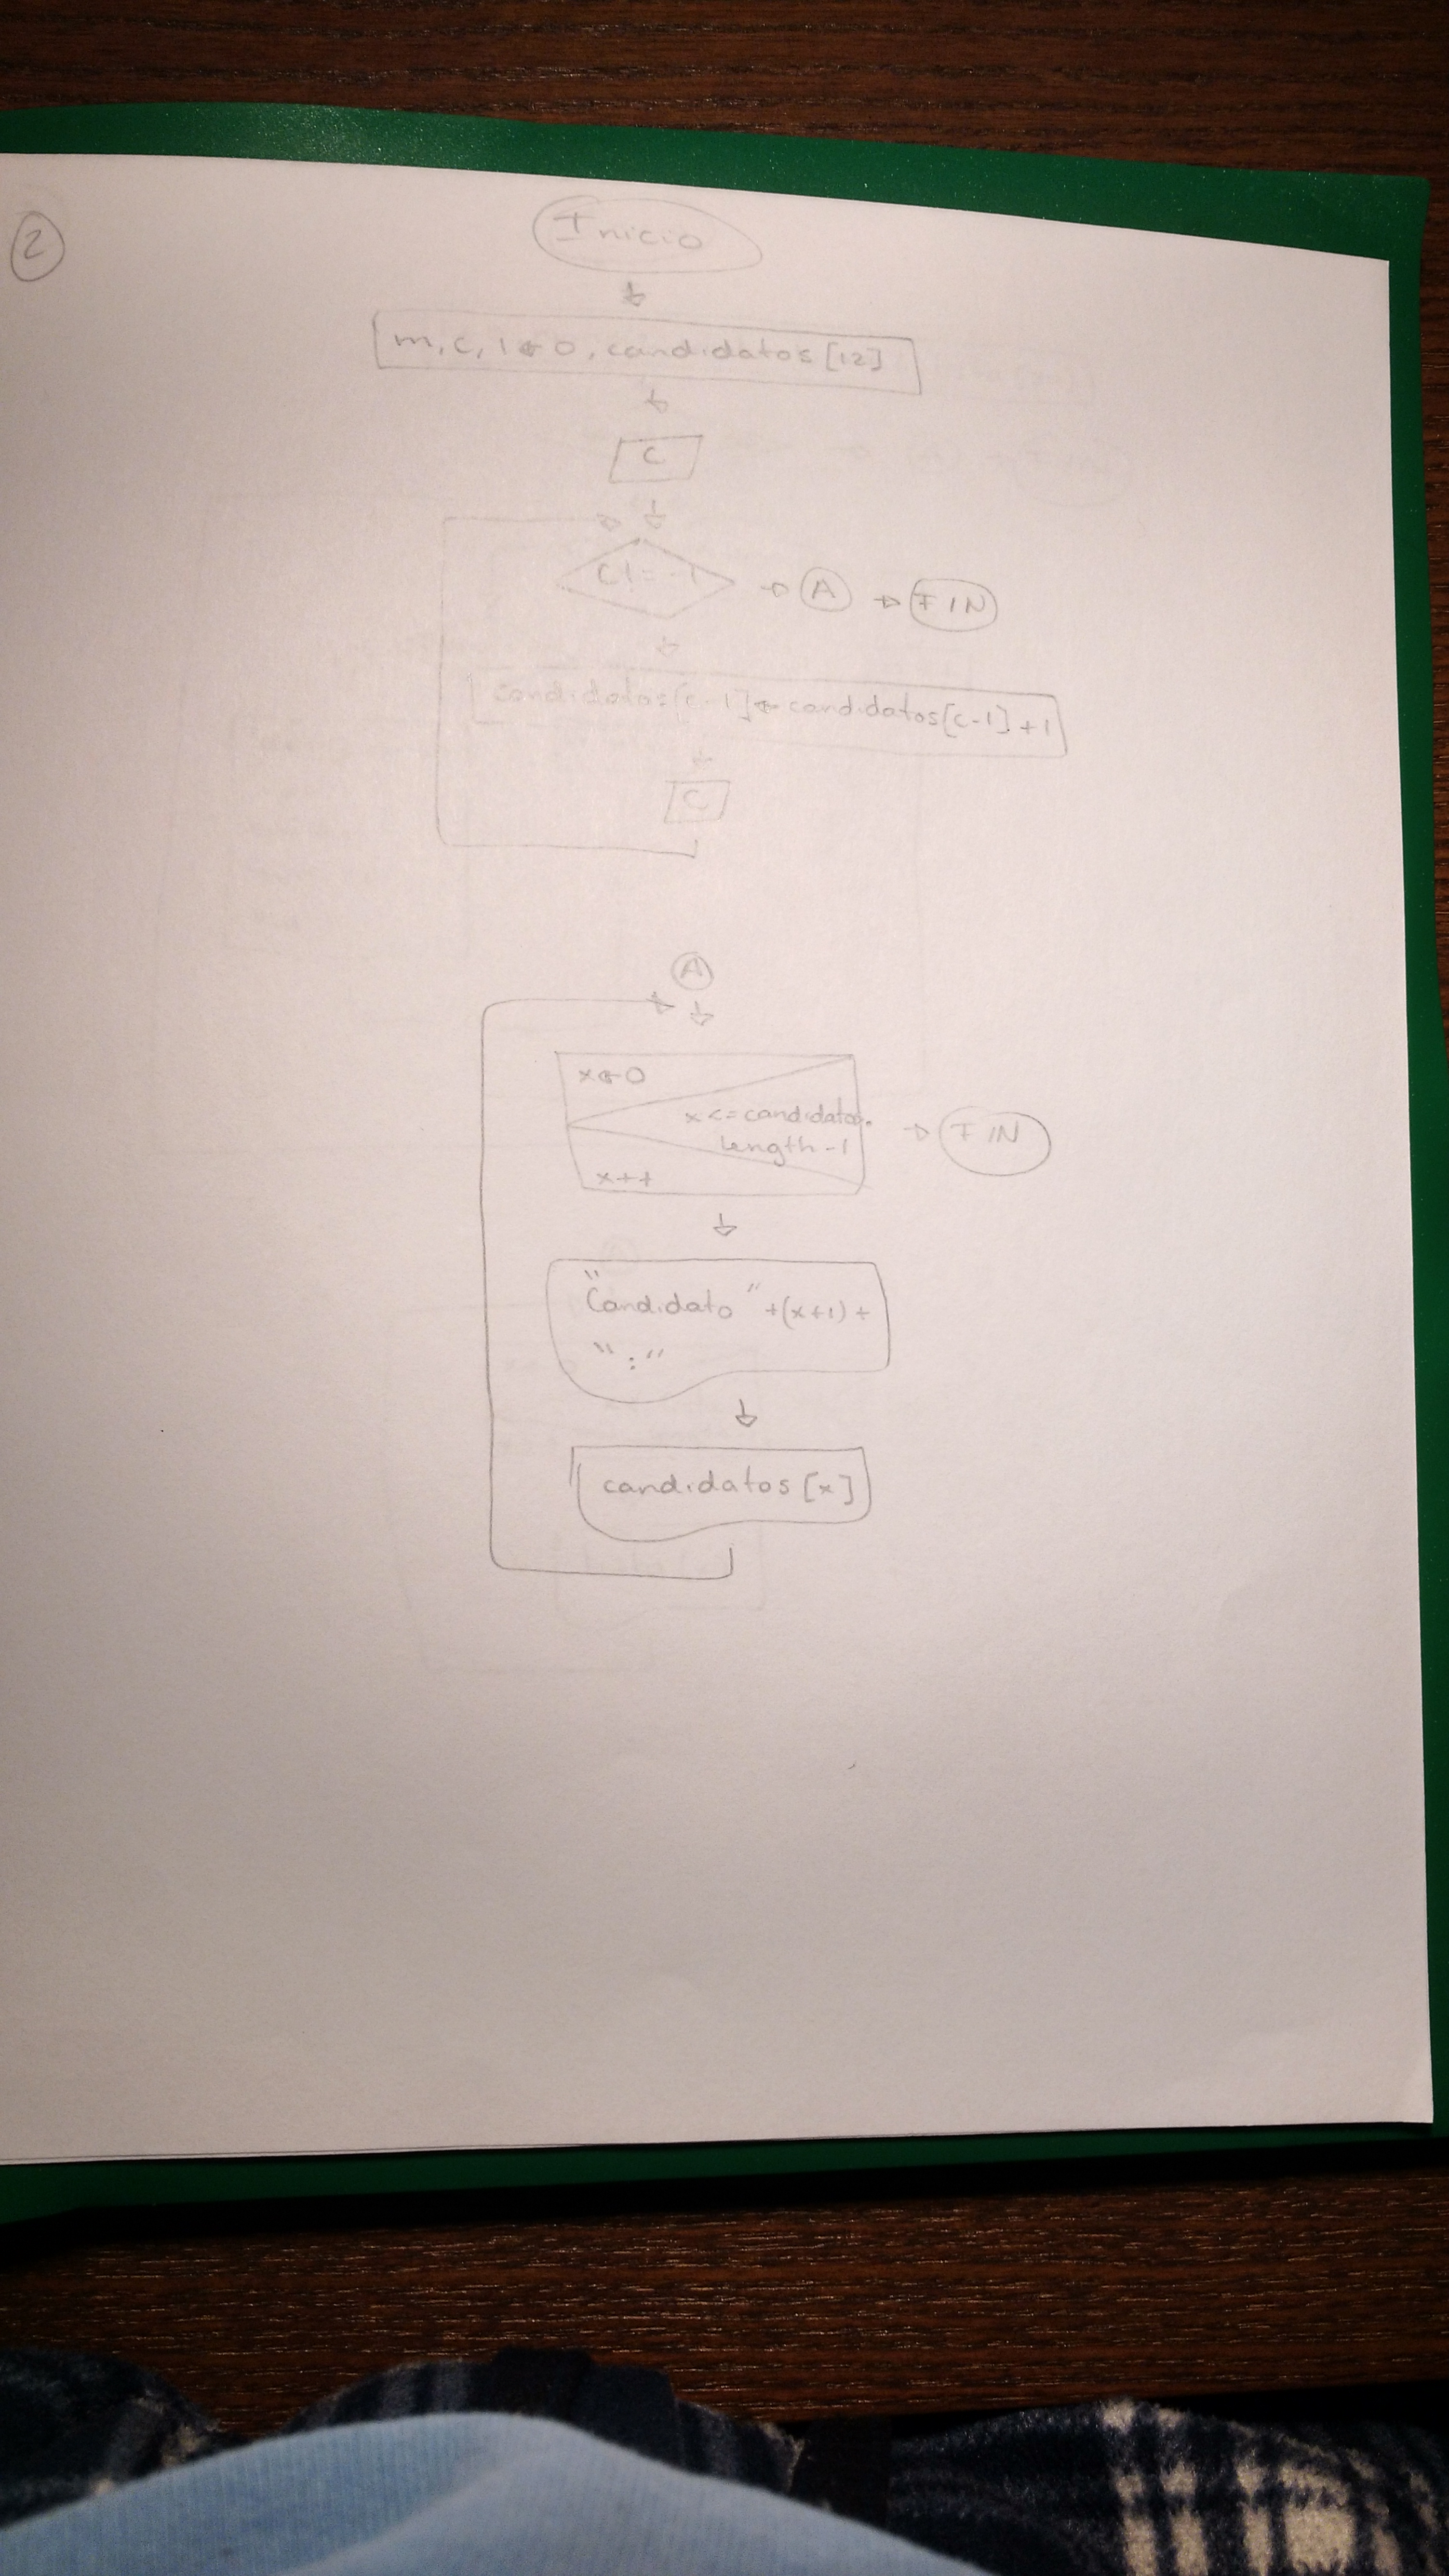 2
Inicio
m, c, i ← 0, candidatos [12]
C
C != -1
A
FIN
candidatos[c-1] ← candidatos[c-1] + 1
C
A
x ← 0
x <= candidatos.
length - 1
x++
FIN
"Candidato " + (x+1) +
" : "
candidatos [x]